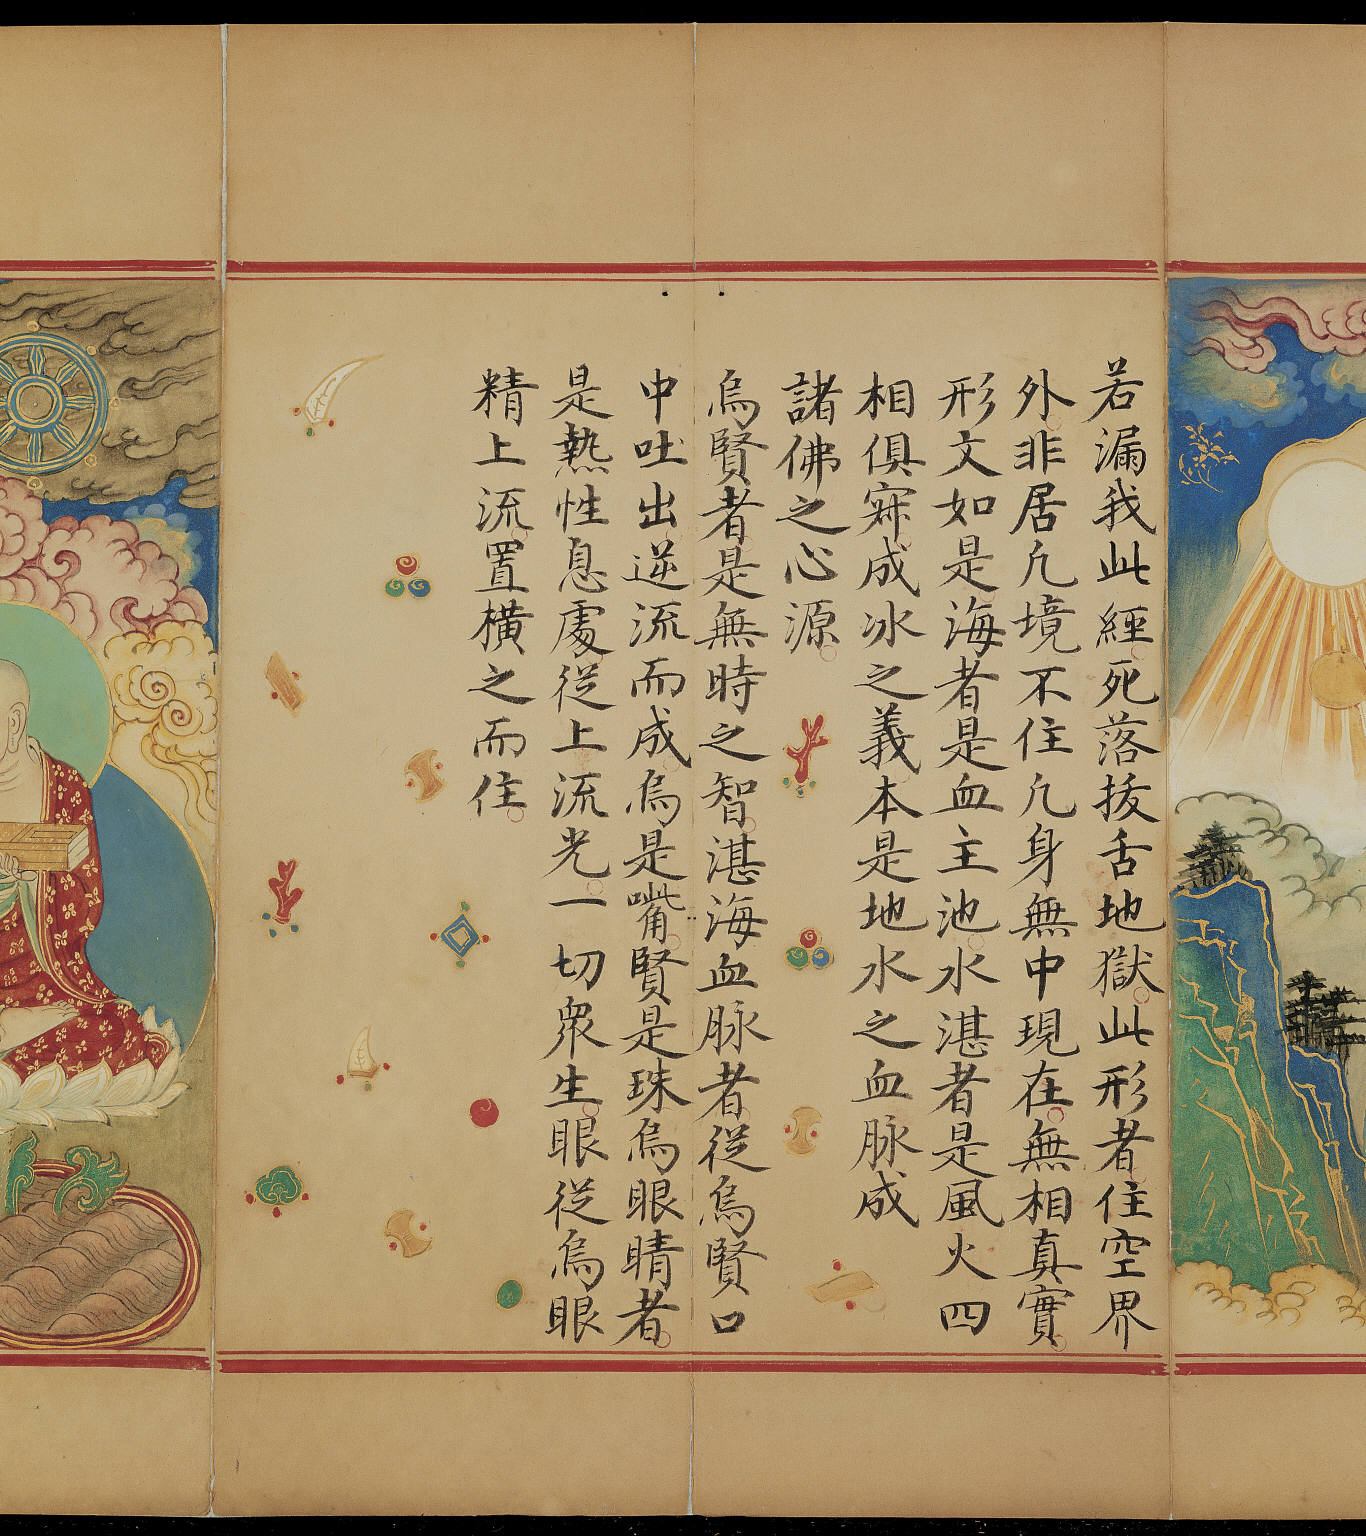 若漏我此經死落拔舌地獄此形者住空界
外非居凢境不住凢身無中現在無相真實
形文如是海者是血主池水湛者是風火四
相俱寂成冰之義本是地水之血脉成
諸佛之心源
烏賢者是無時之智湛海血脉者從烏賢口
中吐出逆流而成烏是嘴賢是珠烏眼睛者
是熱性息處從上流光一切衆生眼從烏眼
精上流置橫之而住